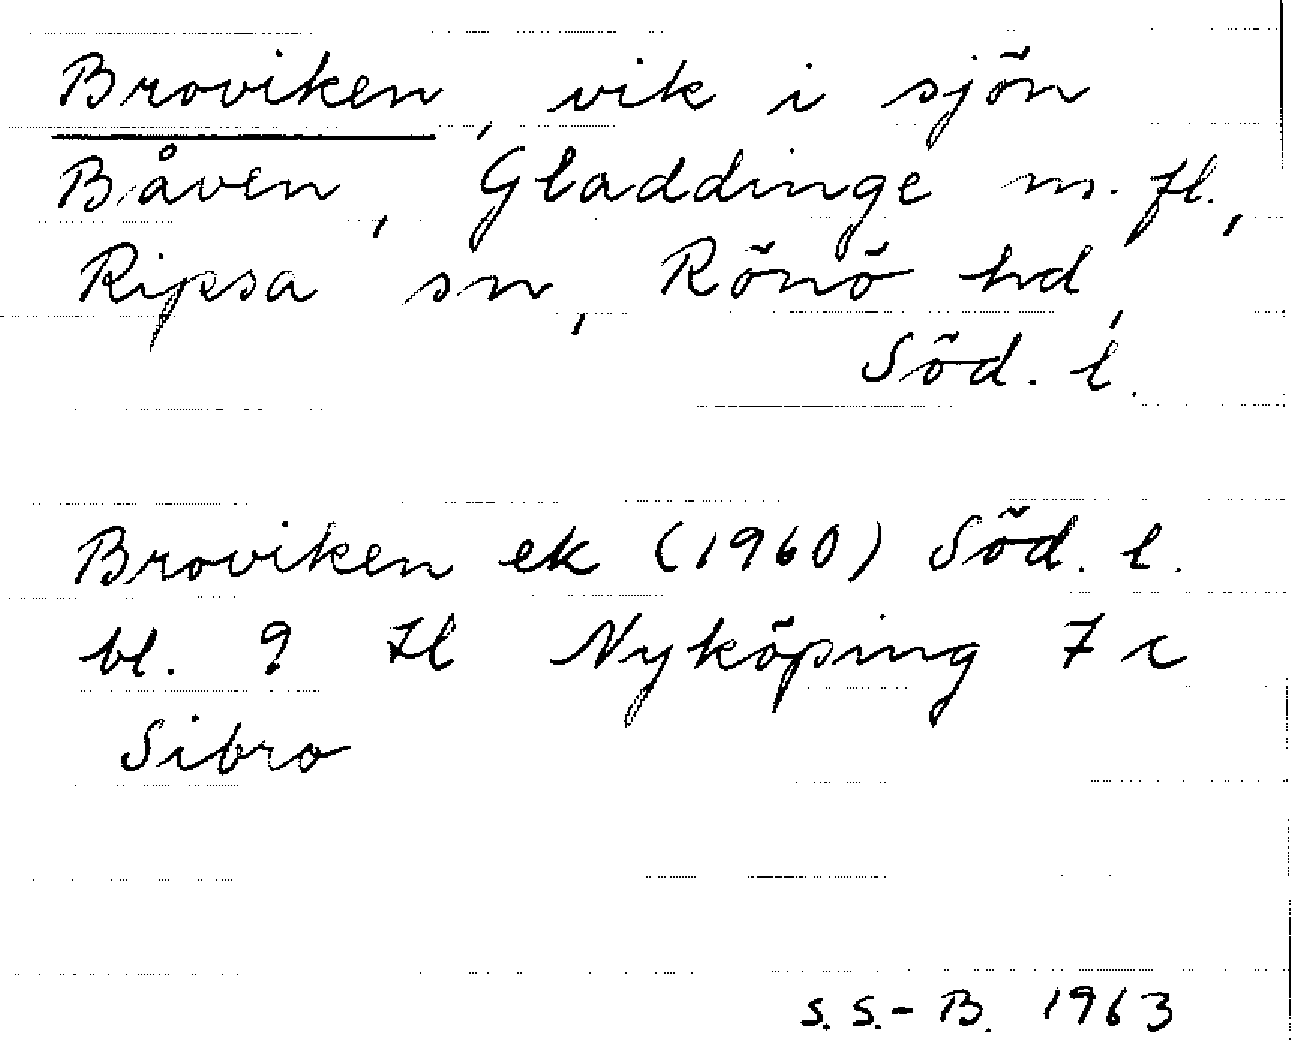 Broviken, vik i sjön
Båven, Gladdinge m.fl.,
Ripsa sn, Rönö hd,
Söd. l.
Broviken ek (1960) Söd. l.
bl. 9 H Nyköping 7 c
Sibro
S. S.-B. 1963